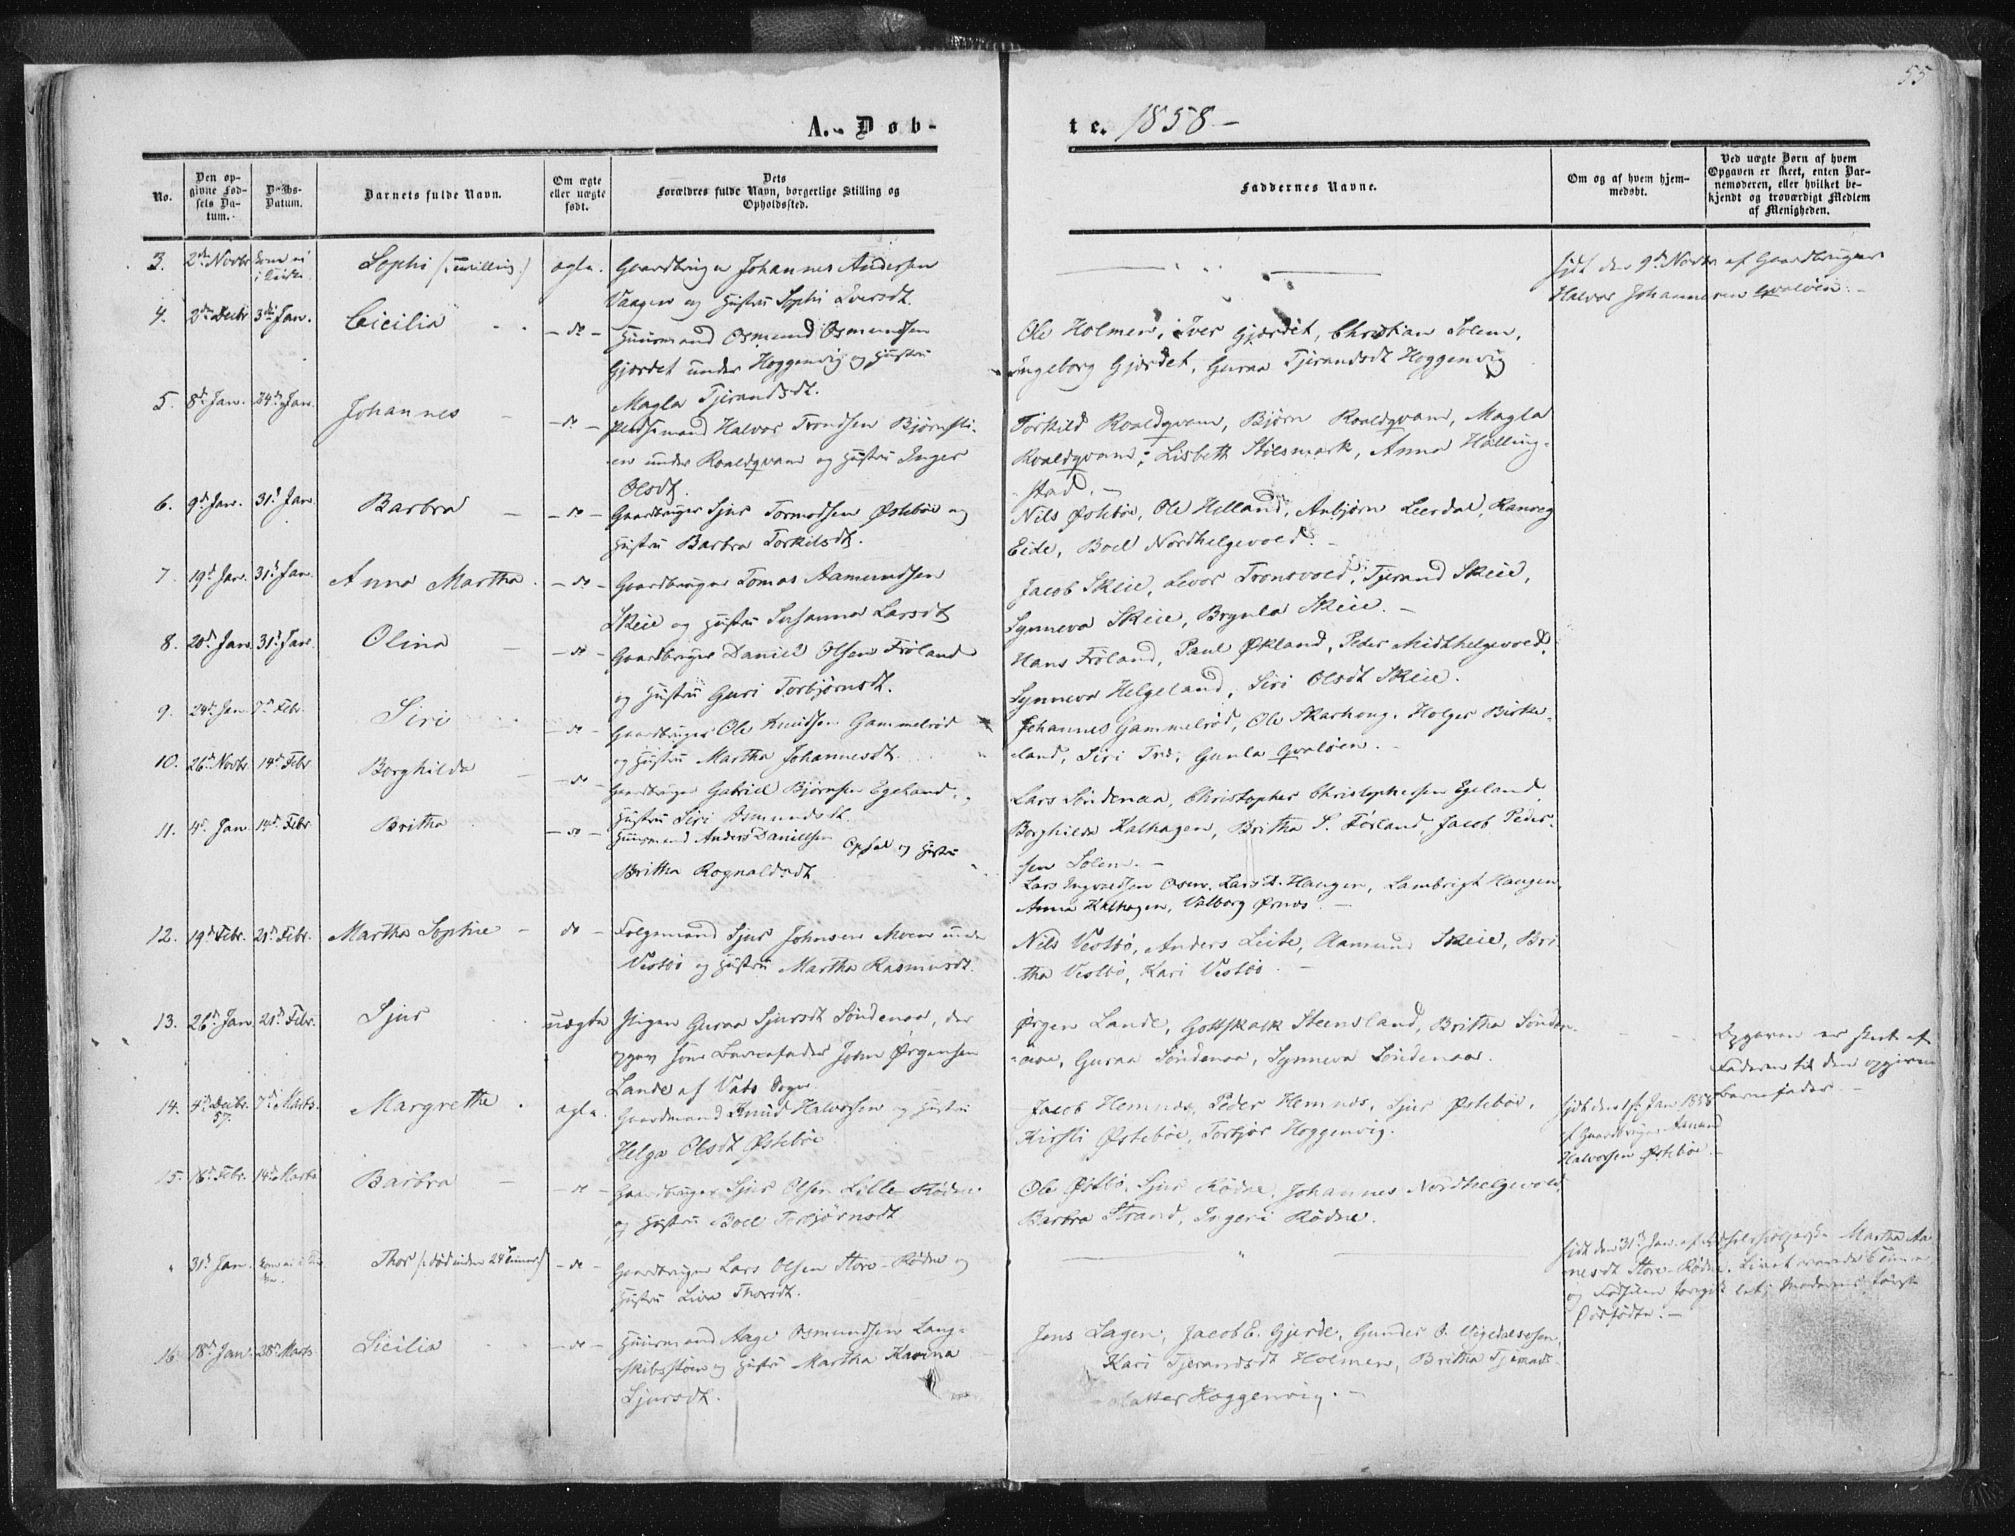 55
A. Døb-
te. 1858.-
No.
Den op-
givne Fød-
sels Da-
tum.
Daabs-
Datum.
Barnets fulde Navn.
Om ægte
eller uægte
født.
Dets
Forældres fulde Navn, borgerlige Stilling og
Opholdssted.
Faddernes Navne.
Om og af hvem hjem-
medøbt.
Ved uægte Børn af hvem
Opgaven er skeet, enten Bar-
nemoderen, eller hvilket be-
kjendt og troværdigt Medlem
af Menigheden.
3. 2d Novbr Sophi (Tvilling) ægte. Gaardbruger Johannes Andersen
Vaagen og Hustru Sophi Iversdt.
hjdt den 9d Novbr af Gaardbruger
Halvor Johannesen Qvaløen.-
4. 2d Decbr 3d Jan. Cicilia - do - Huusmand Osmund Osmundsen
Gjærdet under Hoggenvig og Hustru
Magla Tjerandsdt.
Ole Holmen, Iver Gjærdet, Christian Solem,
Ingeborg Gjærdet, Guraa Tjerandsdt Hoggenvig
5. 8d Jan. 24d Jan. Johannes - do - Pladsmand Halvor Trondsen Bjørnsti-
en under Roaldqvam og Hustru Inger
Olsdt.
Torkild Roaldqvam, Bjørn Roaldqvam, Magla
Roaldqvam, Lisbeth Stølsmark, Anna Halling-
stad.-
6. 9d Jan. 31d Jan. Barbra - do - Gaardbruger Sjur Tormodsen Østebøe og
Hustru Barbra Torkilsdt.
Nils Østebøe, Ole Helland, Anbjørn Leerdal, Ranveg
Eide, Boel Nordhelgevold.-
7. 19d Jan. 31d Jan. Anna Martha. - do - Gaardbruger Tomas Aamundsen
Skeie og Hustru Susanna Larsdt
Jacob Skeie, Levor Tronsvold, Tjerand Skeie,
Synneva Skeie, Brynla Skeie.-
8. 20d Jan. 31d Jan. Olina - do - Gaardbruger Daniel Olsen Frøland
og Hustru Guri Torbjørnsdt.
Hans Frøland, Paul Økland, Peder Midthelgevold,
Synneva Helgeland, Siri Olsdt Skeie.
9. 24d Jan 7d Febr. Siri - do - Gaardbruger Ole Knudsen Gammelrød
og Hustru Martha Johannesdt.
Johannes Gammelrød, Ole Skarhoug, Holger Birke-
land, Siri Træ, Gunla Qvaløen.-
10. 26d Novbr 14d Febr Borghilda - do - Gaardbruger Gabriel Bjørnsen Egeland,
Hustru Siri Osmundsdt.
Lars Søndenaa, Christopher Christophersen Egeland
Borghilda Kalhagen, Britha S. Førland, Jacob Peder-
sen Solem.-
11. 4d Jan 14d Febr Britha - do - Huusmand Anders Danielsen Opsal og Hustru
Britha Rognaldsdt
Lars Ingvaldsen Osen, Lars D. Haugen, Lambrigt Haugen,
Anna Kalhagen, Valborg Ørnæs.-
12. 19d Febr. 21d Febr. Martha Sophie - do - Folgemand Sjur Johnsen Moen under
Vestbø og Hustru Martha Rasmusdt.
Nils Vestbø, Anders Leite, Aamund Skeie, Bri-
tha Vestbø, Kari Vestbø.-
13. 26d Jan 21d Febr. Sjur uægte Pigen Guraa Sjursdt Søndenaa, der
opgav som Barnefader John Ørgensen
Lande af Vats Sogn.
Ørgen Lande, Gottskalk Steensland, Britha Sønde-
naa, Guraa Søndenaa, Synneva Søndenaa.
Opgaven er skeet af
Faderen til den opgivne
Barnefader.-
14. 4d Decbr. 57. 7d Marts. Margrethe. ægte. Gaardmand Knud Halvorsen og Hustru
Helga Olsdt Østebøe
Jacob Hemnæs, Peder Hemnæs, Sjur Østebøe,
Kirsti Østebøe, Torbjør Hoggenvig.
hjdt den 1st Jan 1858
af Gaardbruger Aamund
Halvorsen Østebøe.-
15. 18d Febr. 14d Marts Barbra - do - Gaardbruger Sjur Olsen Lille-Rødne
og Hustru Boel Torbjørnsdt
Ole Østbø, Sjur Rødne, Johannes Nordhelgevold,
Barbra Strand, Ingeri Rødne.
" 31d Jan. Thor (død inden 24 Timer) - do - Gaardbruger Lars Olsen Store-Rødne og
Hustru Liva Thorsdt.
hjdt den 31d Jan. af Martha Aa-
nesdt Store-Rødne. Livet varede 6 Timer
og Fødselen foregik let; Moderens første
16 18d Jan. 28d Marts Cicilia - do - Huusmand Aage Osmundsen Lang-
skibsstøen og Hustru Martha Karina
Sjursdt.
Jens Sagen, Jacob E. Gjerde, Gunder O.
Kari Tjerandsdt Holmen, Britha Tjerands-
datter Hoggenvig.-